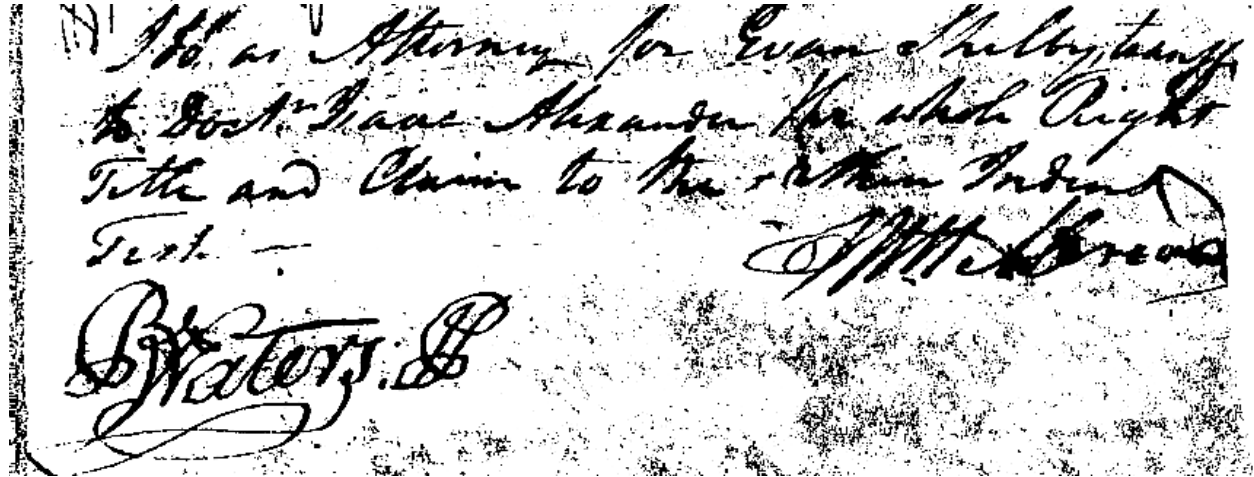 I do as Attorney for Evan Shelby, transfr
to Doctr. Isaac Alexander the whole Right
Title and Claim to the within Indent
Test. —
Wm
B Waters. JP